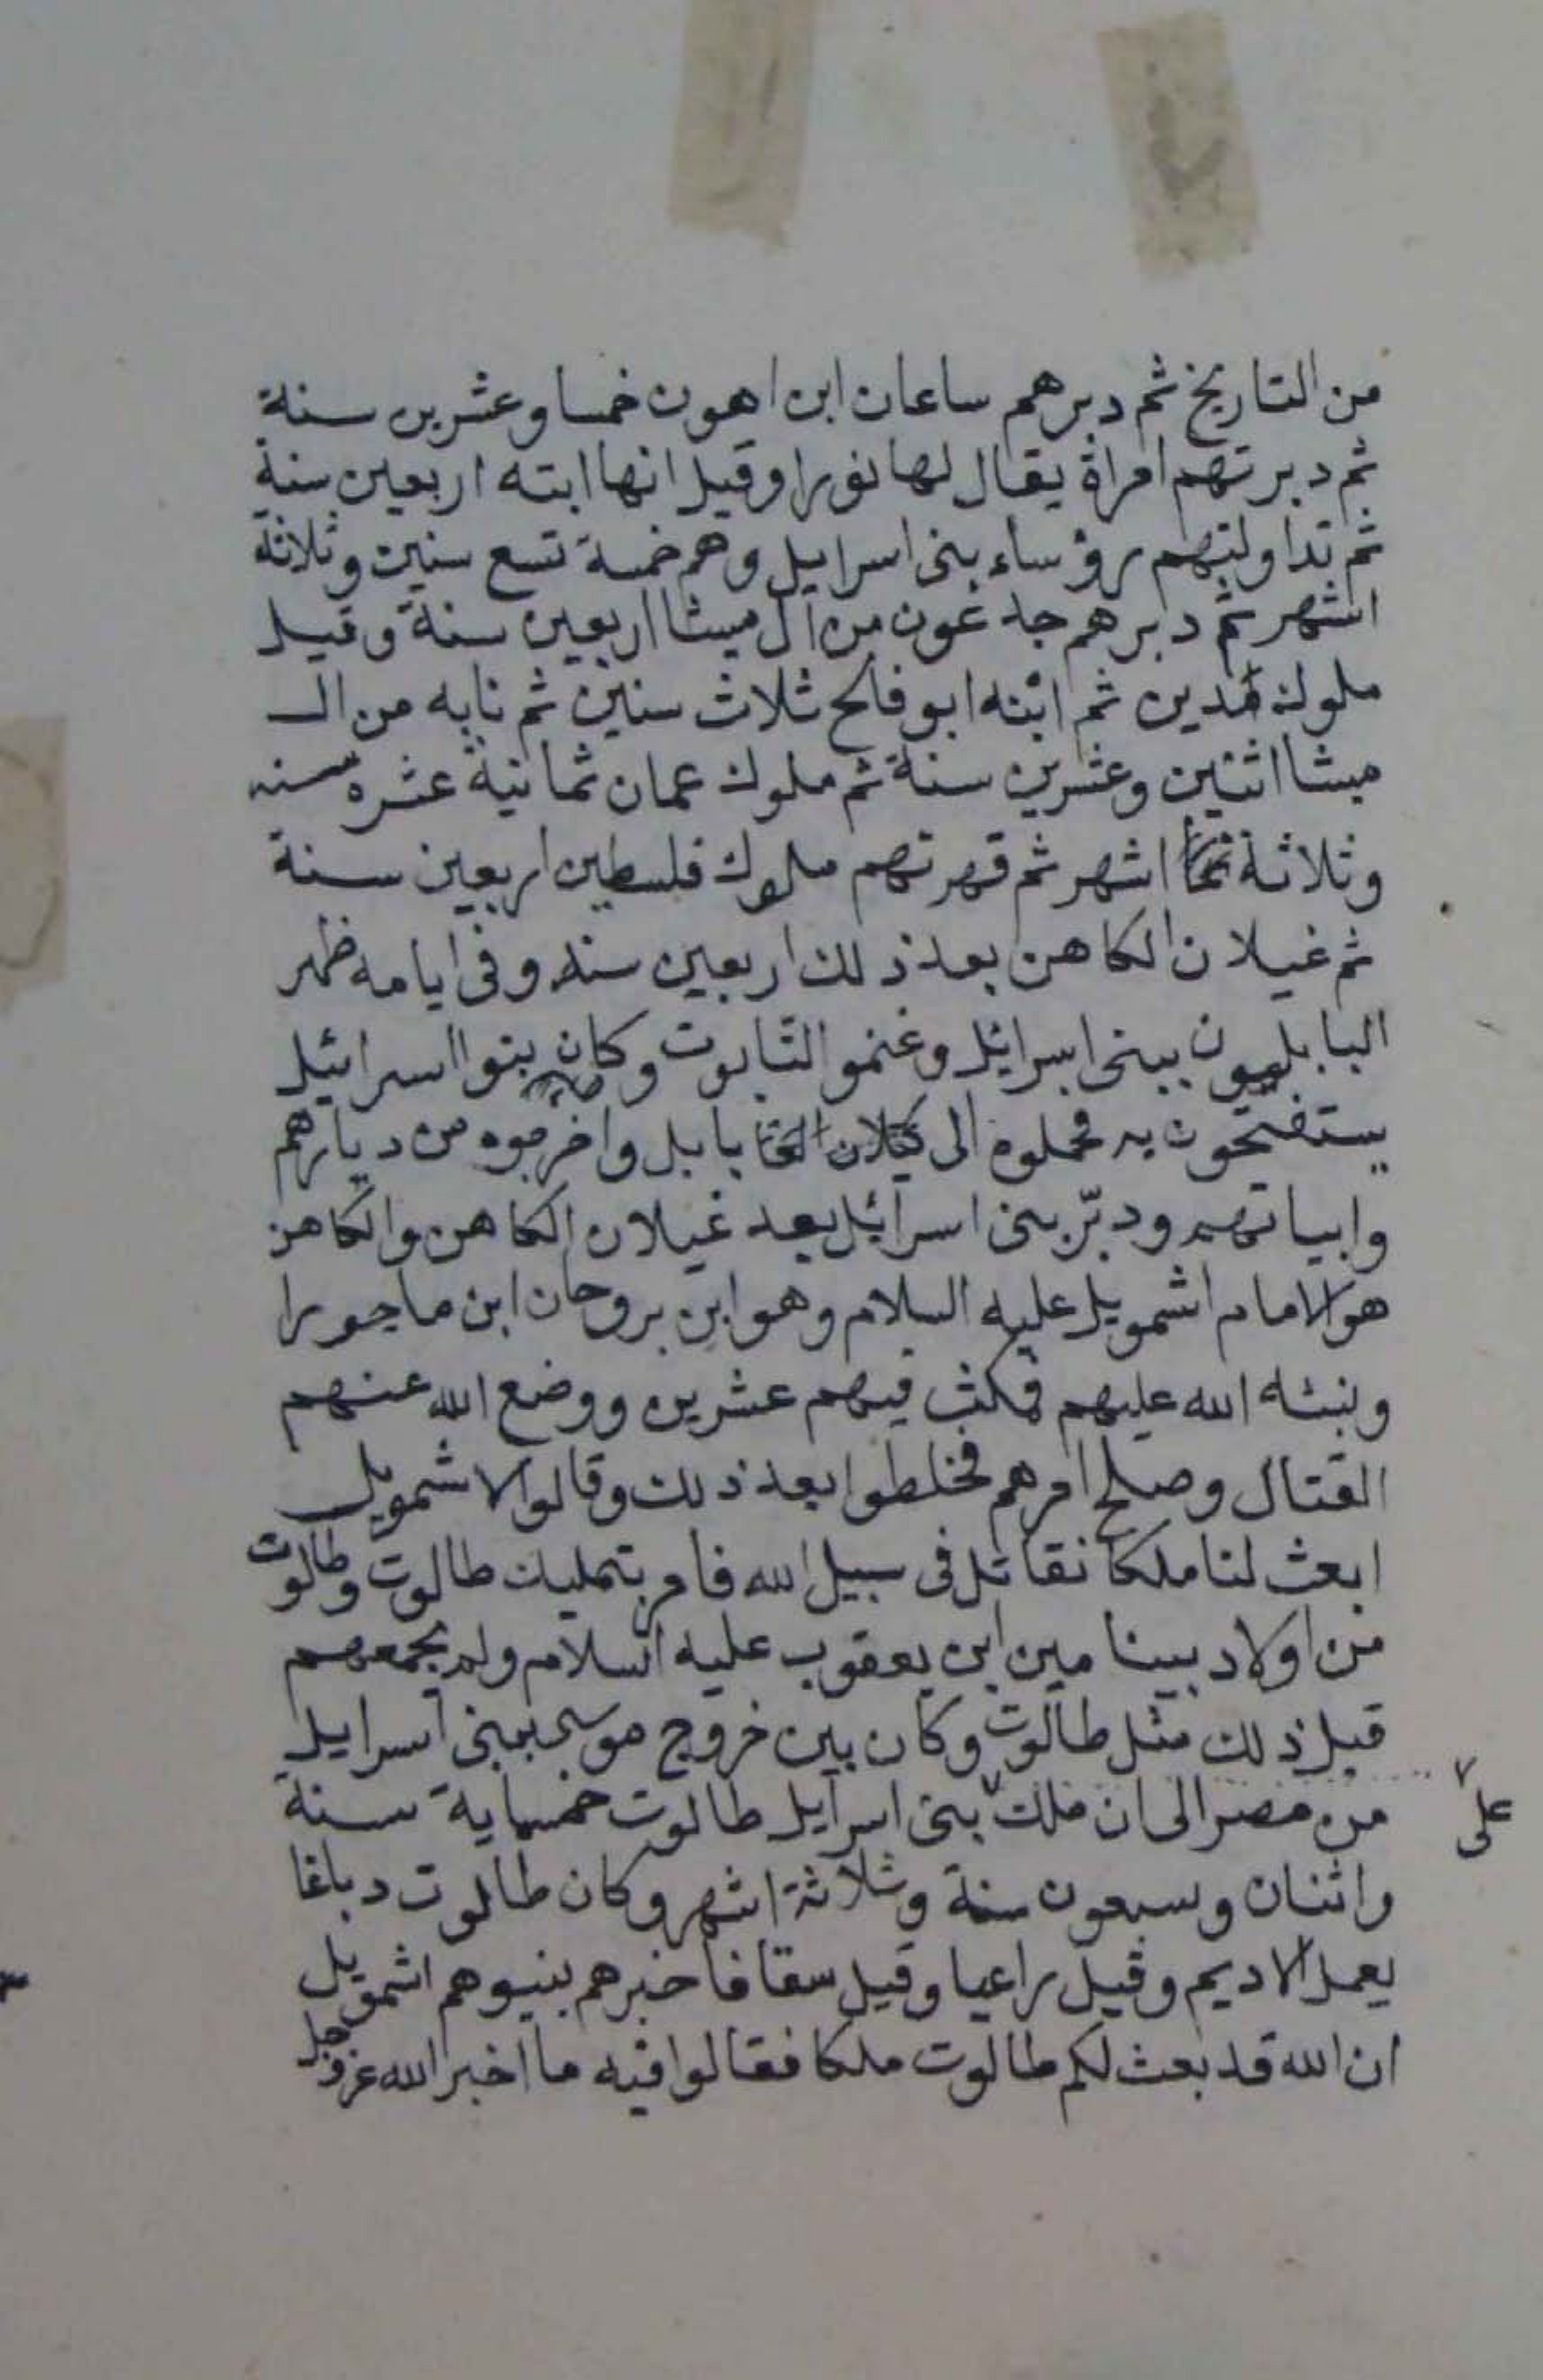 من التاريخ ثم دبرهم ساعان ابن اهون خمسا وعشرين سنة
ثم دبرتهم امراة يقال لها نورا وقيل انها ابته اربعين سنة
ثم تداولتهم رؤساء بنى اسرايل وهم خمسة تسع سنين وثلاثة
اشهر ثم دبرهم جدعون من ال ميشا اربعين سنة وقيل
ملوك مدين ثم ابنه ابو فالح ثلاث سنين ثم نابه من ال
ميشا اثنين وعشرين سنة ثم ملوك عمان ثمانية عشره سنه
وثلاثة اشهر ثم قهرتهم ملوك فلسطين اربعين سنة
ثم غيلان الكاهن بعد ذلك اربعين سنه وفى ايامه ظهر
البابليون ببنى اسرائيل وغنمو التابوت وكان بنوا اسرائيل
يستفتحون به فحملوه الى بابل واخرجوه من ديارهم
وابياتهم ودبّر بنى اسرائيل بعد غيلان الكاهن والكاهن
هو الامام اشمويل عليه السلام وهو ابن بروحان ابن ماجورا
ونبئه الله عليهم فمكث فيهم عشرين ووضع الله عنهم
القتال وصلح امرهم فخلطوا بعد ذلك وقالوا لاشمويل
ابعث لنا ملكا نقاتل فى سبيل الله فامر بتمليك طالوت وطالوت
من اولاد بينامين ابن يعقوب عليه السلام ولم يجمعهم
قبل ذلك مثل طالوت وكان بين خروج موسى ببنى اسرايل
من مصر الى ان ملك بنى اسرايل طالوت خمسماية سنة
على
واثنان وسبعون سنة وثلاثة اشهر وكان طالوت دباغا
يعمل الاديم وقيل راعيا وقيل سقا فاخبرهم بنيوهم اشمويل
ان الله قد بعث لكم طالوت ملكا فقالوا فيه ما اخبر الله عز وجل